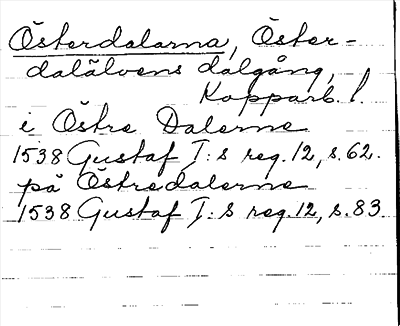 Österdalarna, Öster-
dalälvens dalgång,
Kopparb. l.
i Östre Dalerne
1538 Gustaf I:s reg. 12, s. 62.
på Östredalerne
1538 Gustaf I:s reg. 12, s. 83.